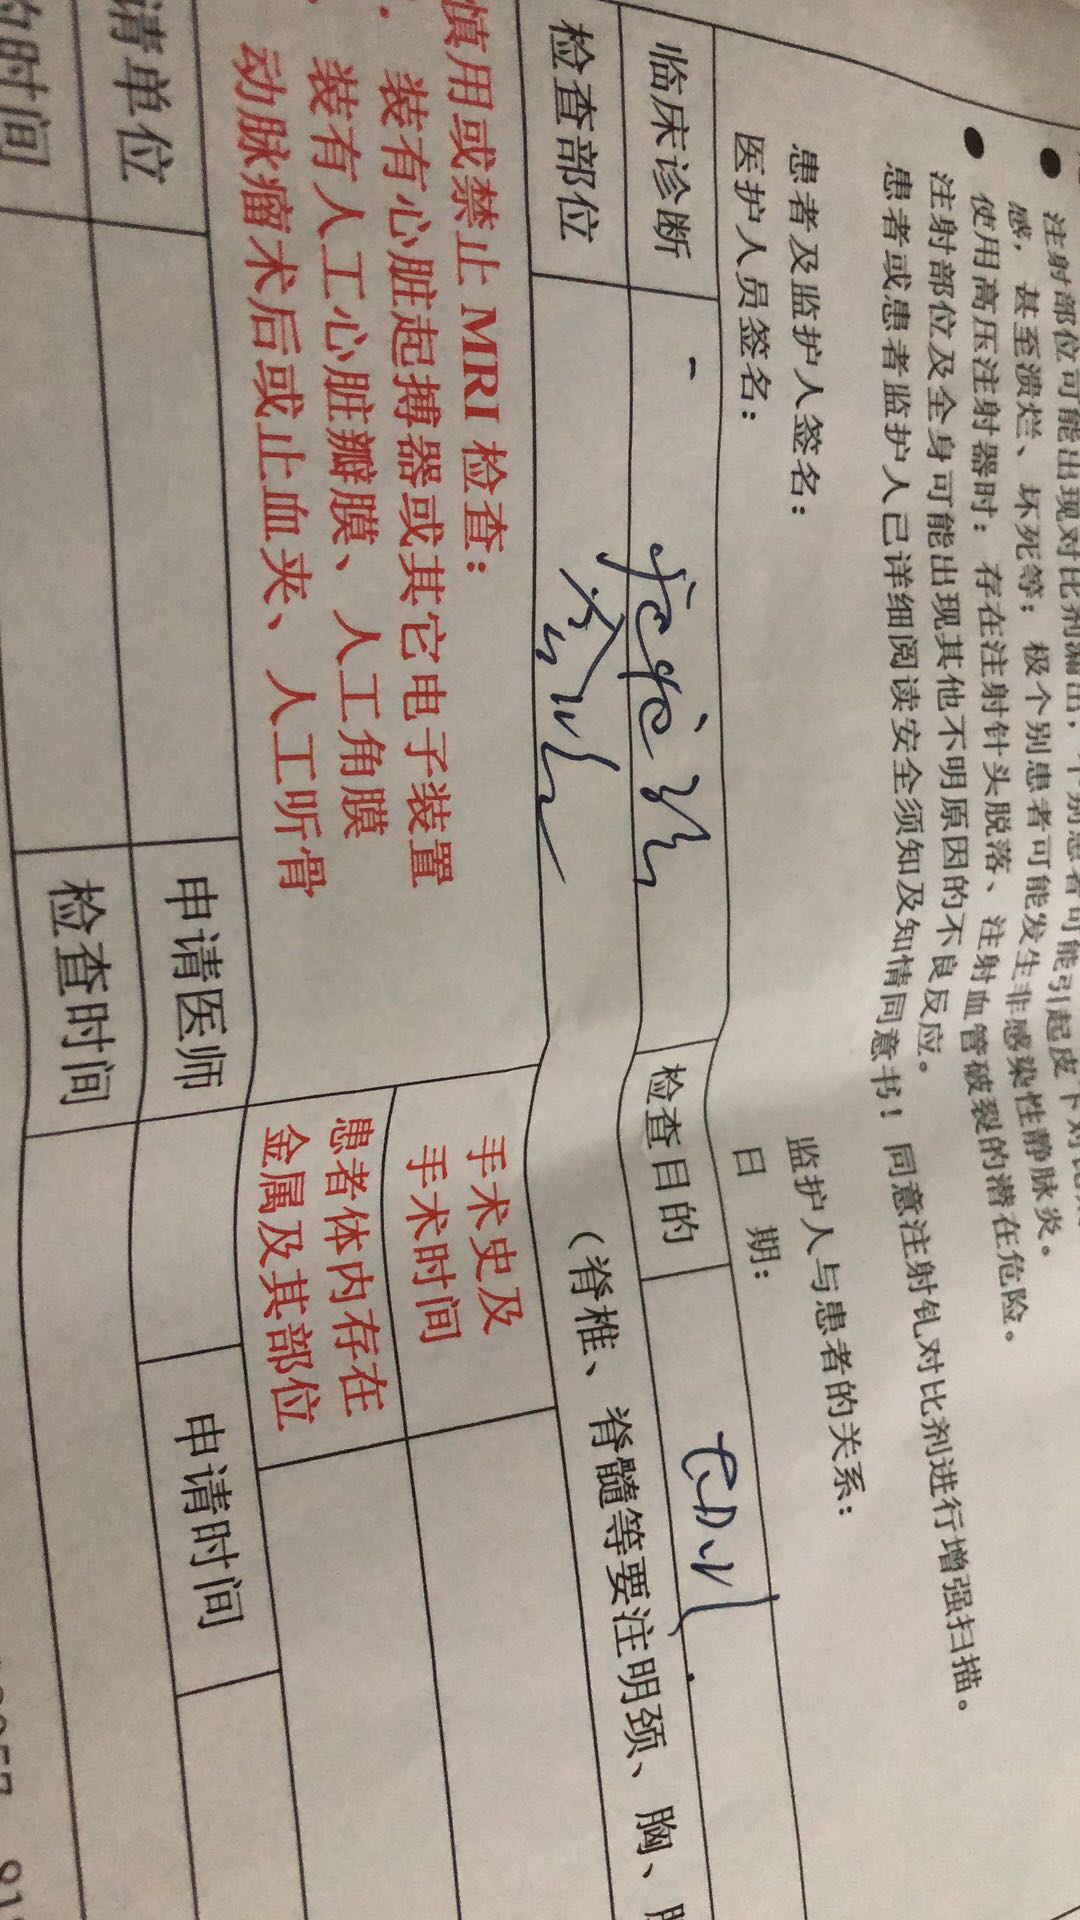 注射部位可能出现对比剂漏出，个别患者可能引起皮下对比
感，甚至溃烂、坏死等；极个别患者可能发生非感染性静脉炎。
使用高压注射器时：存在注射针头脱落、注射血管破裂的潜在危险。
注射部位及全身可能出现其他不明原因的不良反应。
患者或患者监护人已详细阅读安全须知及知情同意书！同意注射钆对比剂进行增强扫描。
患者及监护人签名： 监护人与患者的关系：
医护人员签名： 日 期：
临床诊断 检查目的
检查部位 （脊椎、脊髓等要注明颈、胸、
慎用或禁止 MRI 检查：
装有心脏起搏器或其它电子装置
装有人工心脏瓣膜、人工角膜
动脉瘤术后或止血夹、人工听骨
手术史及
手术时间
患者体内存在
金属及其部位
请单位 申请医师 申请时间
时间 检查时间